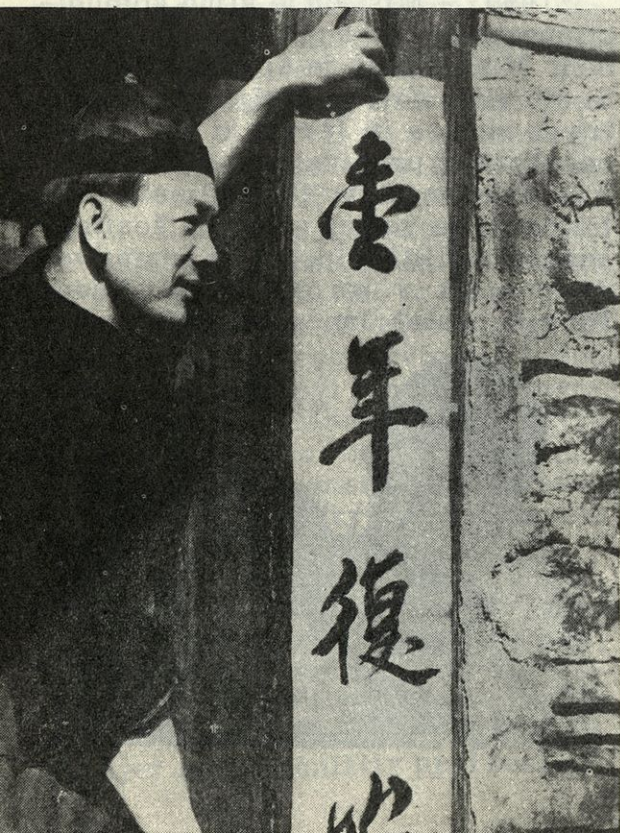 壹
年
復